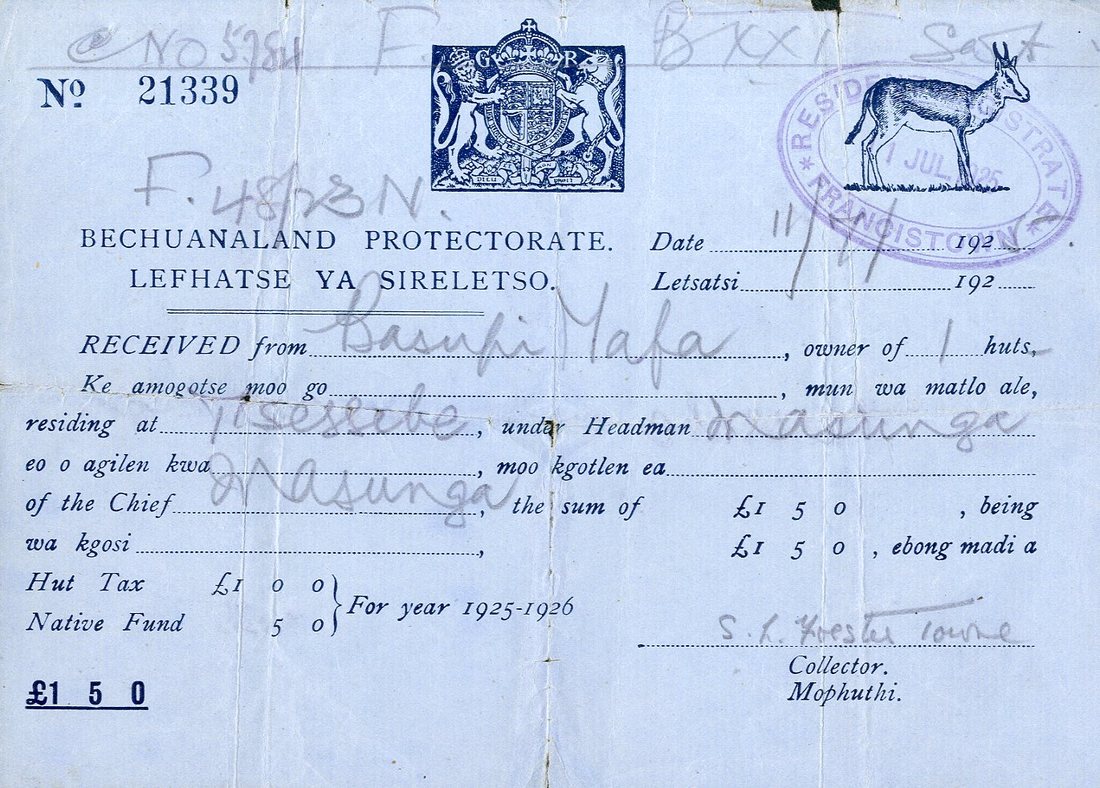 C NO 5784 F. B XXI
Nº 21339
G R
RESIDENT MAGISTRATE
1 JUL 1925
FRANCISTOWN
F. 48/23 N.
BECHUANALAND PROTECTORATE. Date 11/7/ 1925
LEFHATSE YA SIRELETSO. Letsatsi 192
RECEIVED from Gasupi Mafa, owner of 1 huts,
Ke amogotse moo go, mun wa matlo ale,
residing at Tsessebe, under Headman Masunga
eo o agilen kwa, moo kgotlen ea
of the Chief Masunga, the sum of £1 5 0, being
wa kgosi, £1 5 0, ebong madi a
Hut Tax £1 0 0
Native Fund 5 0 } For year 1925-1926
S. L. Forester Towne
Collector.
Mophuthi.
£1 5 0